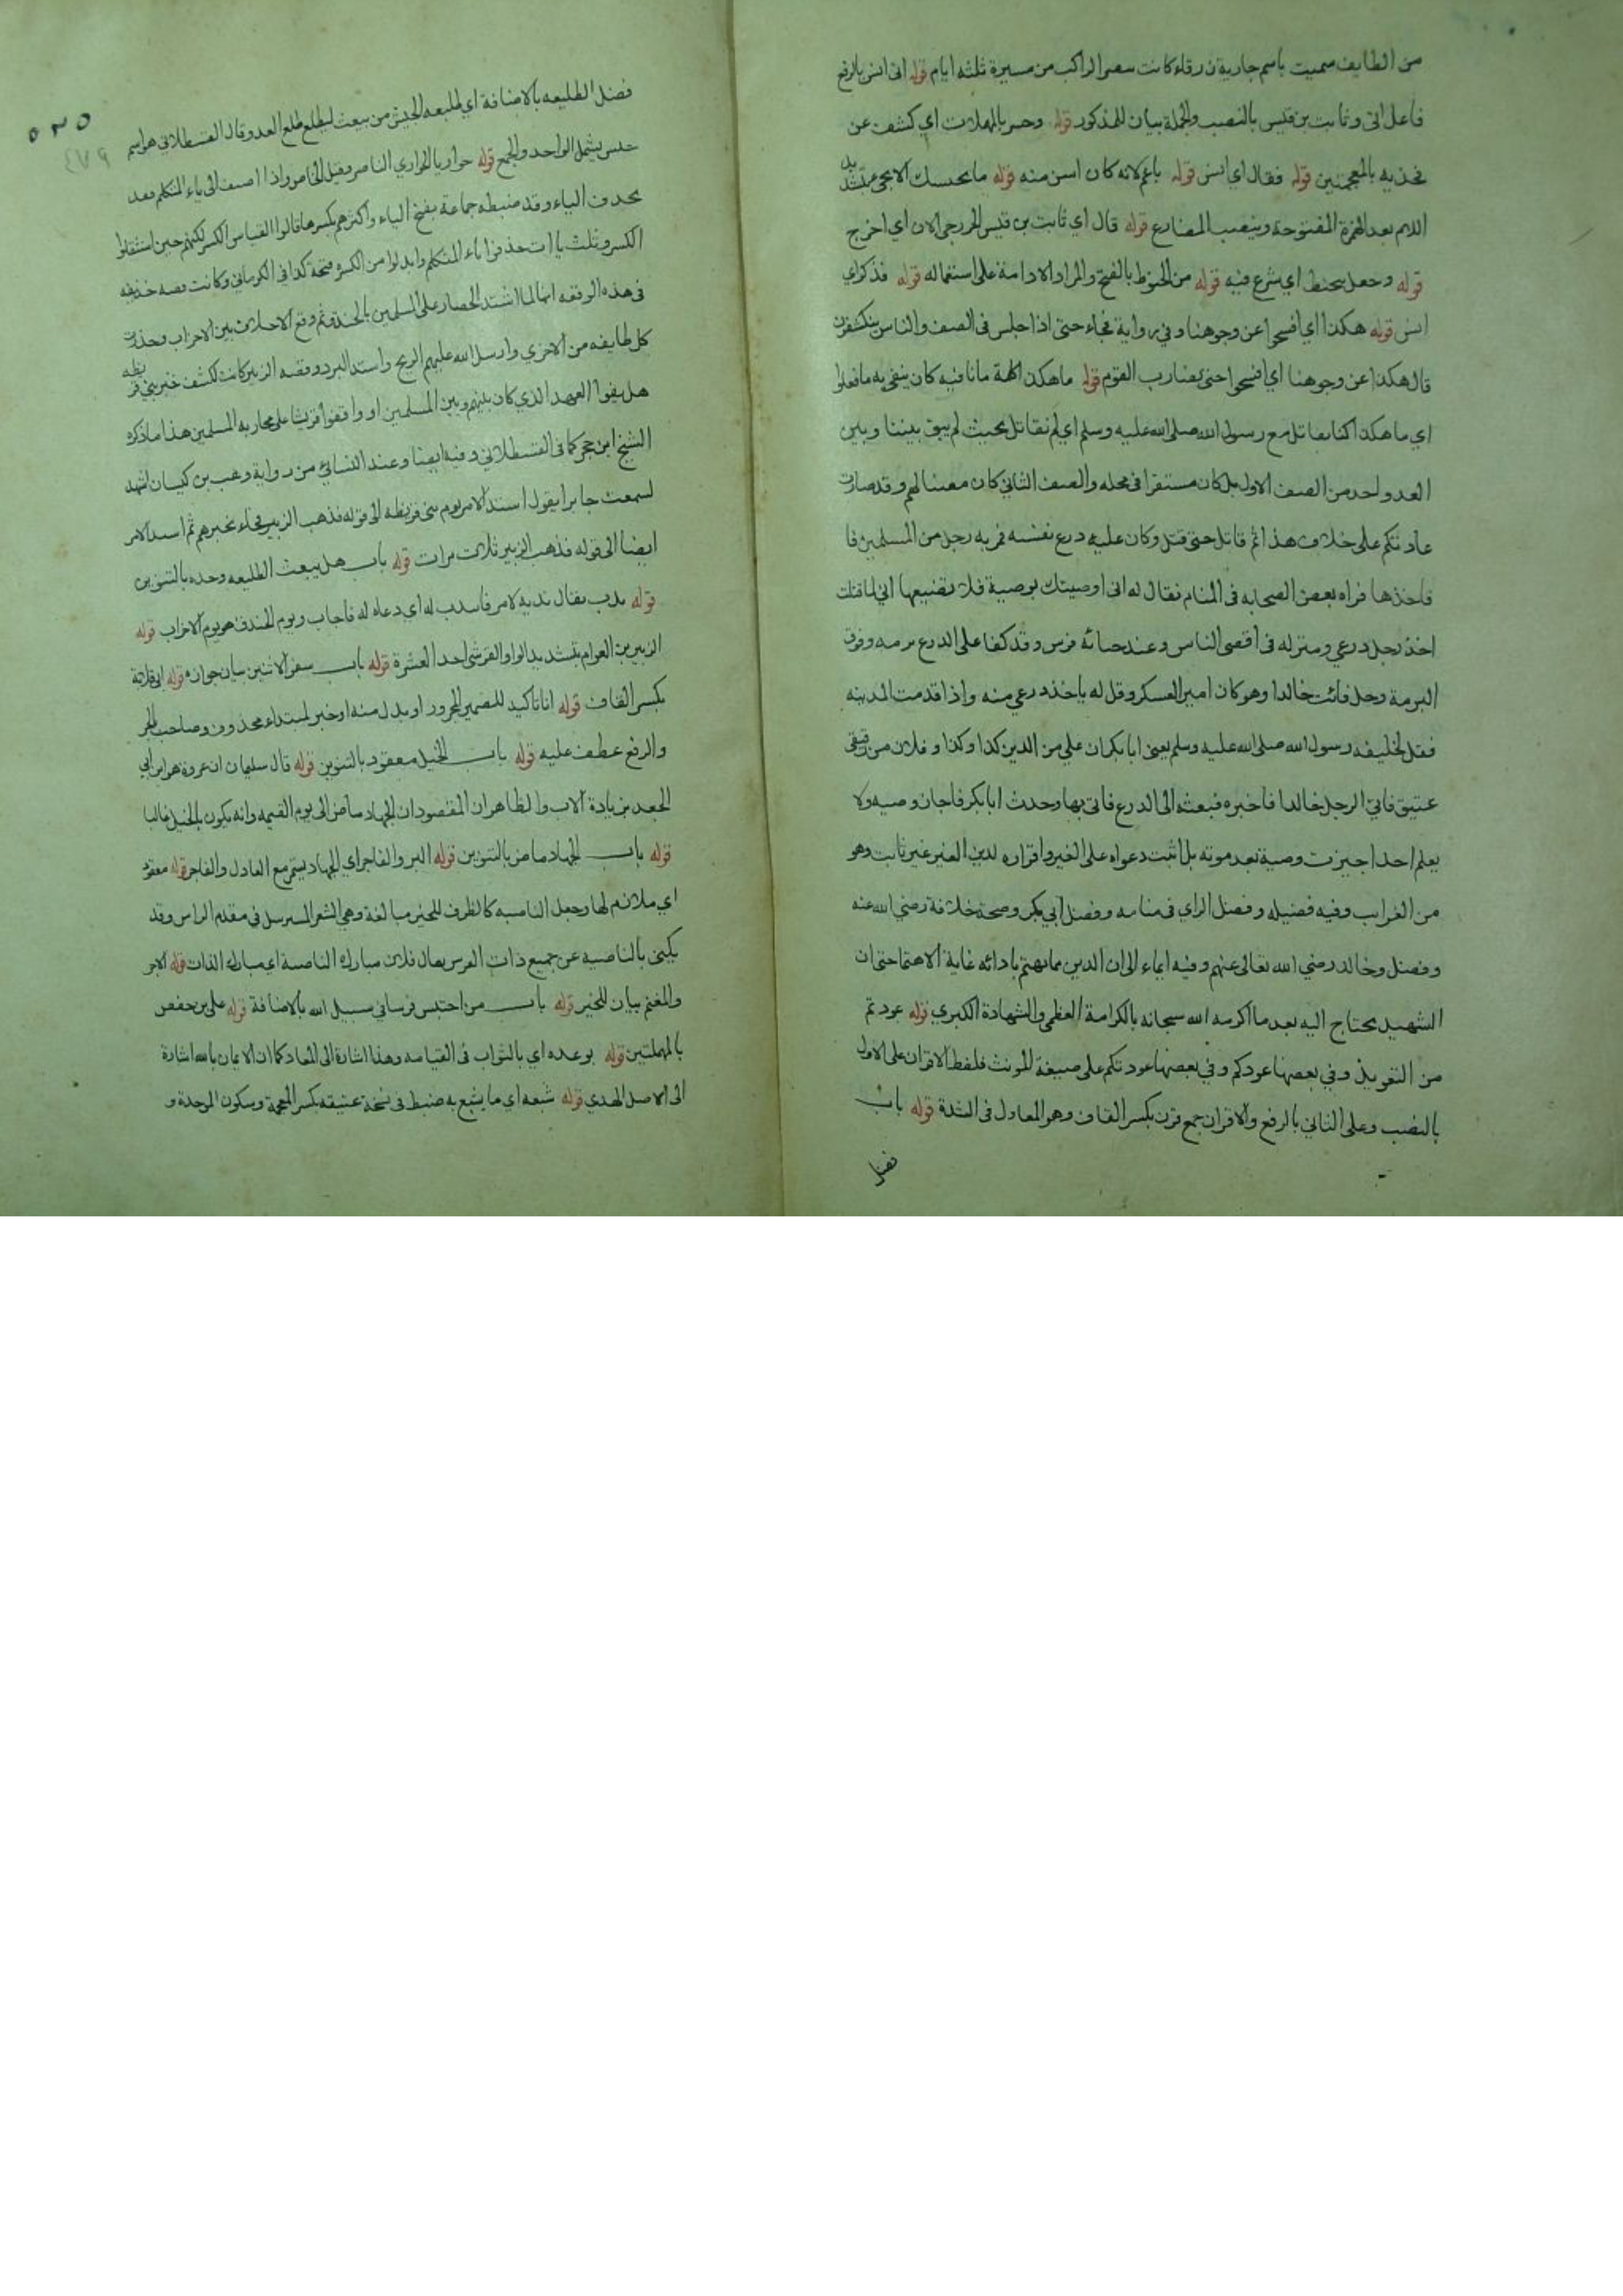 من الطايف سميت باسم جارية زرقاء كانت تبصر الراكب من مسيرة ثلثة ايام قوله اتى انس بالرفع
فاعل اتى وثابت بن قيس بالنصب والجملة بيان للمذكور قوله وحسر بالمهلات اي كشف عن
فخذيه بالمعجمتين قوله فقال اي انس قوله يا عم لانه كان اسن منه قوله ما يحبسك الا يجي بتشديد
اللام بعد الهمزة المفتوحة وبنصب المضارع قوله قال اي ثابت بن قيس الخزرجي الان اي اخرج
قوله وجعل يتحنط اي يشرع فيه قوله من الحنوط بالفتح والمراد الادامة على استعماله قوله فذكر اي
انس قوله هكذا اي افسحوا عن وجوهنا وفي رواية فجاء حتى اذا جلس في الصف والناس ينكشفون
قال هكذا عن وجوهنا اي افسحوا حتى نضارب القوم قوله ما هكذا كلمة ما نافية كان ينفي به ما فعلوا
اي ما هكذا كنا نقاتل مع رسول الله صلى الله عليه وسلم اي لم نقاتل بحيث لم يبق بيننا وبين
العدو احد من الصف الاول بل كان مستقرا في محله والصف الثاني كان معينا لهم وقد صارت
عادتكم على خلاف هذا ثم قاتل حتى قتل وكان عليه درع نفيسه فمر به رجل من المسلمين فا
فاخذها فراه بعض الصحابه في المنام فقال له اني اوصيتك بوصية فلا تضيعها اني لما قتلت
اخذ رجل درعي ومنزله في اقصى الناس وعند خبائه فرس وقد كفا على الدرع برمه وفوق
البرمة رحل فائت خالدا وهو كان امير العسكر وقل له ياخذ درعي منه واذا قدمت المدينه
فقل لخليفه رسول الله صلى الله عليه وسلم يعني ابا بكر ان علي من الدين كذا وكذا وفلان من رقيقي
عتيق فاتى الرجل خالدا فاخبره فبعث الى الدرع فاتى بها وحدث ابا بكر فاجاز وصيه ولا
يعلم احد اجيزت وصية بعد موته بل اثبت دعواه على الغير واقراره لدين الغير غير ثابت وهو
من الغرايب وفيه فضيله وفضل الراي في منامه وفضل ابي بكر وصحة خلافة رضي الله عنه
وفضل وخالد رضي الله تعالى عنهم وفيه ايماء الى ان الدين مما يهتم بادائه غاية الاهتما حتى ان
الشهيد يحتاج اليه بعد ما اكرمه الله سبحانه بالكرامة العظمى والشهادة الكبرى قوله عودتم
من التعويذ وفي بعضها عودكم وفي بعضها عودتكم على صيغة المونث فلفظ الاقران على الاول
بالنصب وعلى الثاني بالرفع والاقران جمع قرن بكسر القاف وهو المعادل في الشدة قوله باب
فضل
٥٢٥
٤٧٩
فضل الطليعه بالاضافة اي طليعه الجيش من يبعث ليطلع طلع العدو وقال القسطلاني هو اسم
جنس يشمل الواحد والجمع قوله حواريا الحواري الناصر وقيل الخاص واذا اضيف الى ياء المتكلم فقد
يحذف الياء وقد ضبطه جماعة بفتح الياء واكثرهم بكسرها قالوا القياس الكسر لكنهم حين استثقلوا
الكسر وثلث ياات حذفوا ياء المتكلم وابدلوا من الكسرة فتحة كذا في الكرماني وكانت قصه حذيفه
في هذه الوقعه انما لما اشتد الحصار على المسلمين بالخندق ثم وقع الاختلاف بين الاحزاب وحذرت
كل طايفه من الاخري وارسل الله عليهم الريح واشتد البرد وقصه الزبير كانت لكشف خبر بني قريظه
هل بقوا العهد الذي كان بينهم وبين المسلمين او وافقوا قريشا على محاربه المسلمين هذا ما ذكره
الشيخ ابن حجر كما في القسطلاني وفيه ايضا وعند النسائي من رواية وهب بن كيسان اشهد
لسمعت جابرا يقول اشتد الامر يوم بني قريظه الى قوله فذهب الزبير فجاء بخبرهم ثم اشتد الامر
ايضا الى قوله فذهب الزبير ثلاث مرات قوله باب هل يبعث الطليعه وحده بالتنوين
قوله ندب يقال ندبه لامر فانتدب له اي دعاه له فاجاب ويوم الخندق هو يوم الاحزاب قوله
الزبير بن العوام بتشديد الواو القرشي احد العشرة قوله باب سفر الاثنين بيان جوازه قوله ابي قلابة
بكسر القاف قوله انا تاكيد للضمير المجرور او بدل منه او خبر لمبتداء محذوف وصاحب بالجر
والرفع عطف عليه قوله باب الخيل معقود بالتنوين قوله قال سليمان ان عروة هو ابن ابي
الجعد بزيادة الاب والظاهر ان المقصود ان الجهاد ماض الى يوم القيمه وانه يكون بالخيل غالبا
قوله باب الجهاد ماض بالتنوين قوله البر والفاجر اي الجهاد يستمر مع العادل والفاجر قوله معقود
اي ملازم لها وجعل الناصيه كالظرف للخير مبالغة وهي الشعر المسترسل في مقدم الراس وقد
يكنى بالناصيه عن جميع ذات الفرس يقال فلان مبارك الناصية اي مبارك الذات قوله الاجر
والمغنم بيان للخير قوله باب من احتبس فرسا في سبيل الله بالاضافة قوله علي بن حفص
بالمهملتين قوله بوعده اي بالثواب في القيامه وهذا اشارة الى المعاد كما ان الايمان بالله اشارة
الى الاصل المبدي قوله شبعه اي ما يشبع به ضبط في نسخة عتيقه بكسر المعجمة وسكون الموحدة و